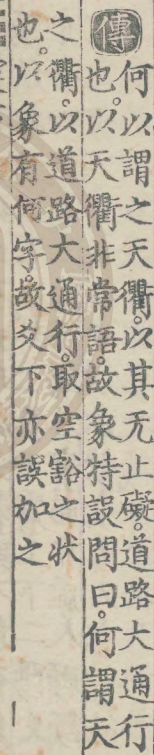 傳
何以謂之天衢。以其无止礙。道路大通行
也。以天衢非常語。故象特設問曰。何謂天
之衢。以道路大通行。取空豁之狀
也。以象有何字。故爻下亦誤加之